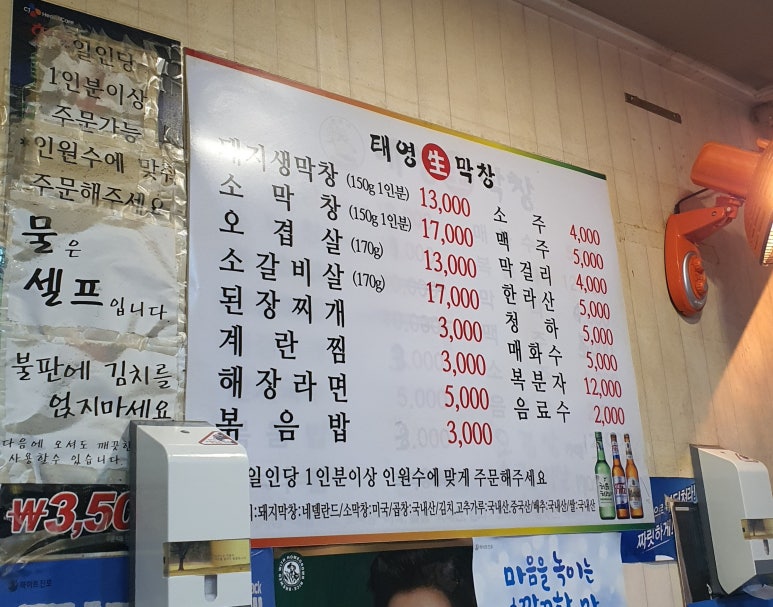 CJ HealthCare
일인당
1인분이상
주문가능
*인원수에 맞춰
주문해주세요
물은
셀프입니다
불판에 김치를
얹지마세요
다음에 오셔도 깨끗한
사용할수 있습니다.
₩3,50
하이트진로
태영 生 막창
돼지생막창 (150g 1인분) 13,000
소막창 (150g 1인분) 17,000
오겹살 (170g) 13,000
소갈비살 (170g) 17,000
된장찌개 3,000
계란찜 3,000
해장라면 5,000
볶음밥 3,000
소주 4,000
맥주 5,000
막걸리 4,000
한라산 5,000
청하 5,000
매화수 5,000
복분자 12,000
음료수 2,000
일인당 1인분이상 인원수에 맞게 주문해주세요
:돼지막창:네델란드/소막창:미국/곱창:국내산/김치,고추가루:국내산,중국산/배추:국내산/쌀:국내산
마음을 녹이는
짜릿하게.